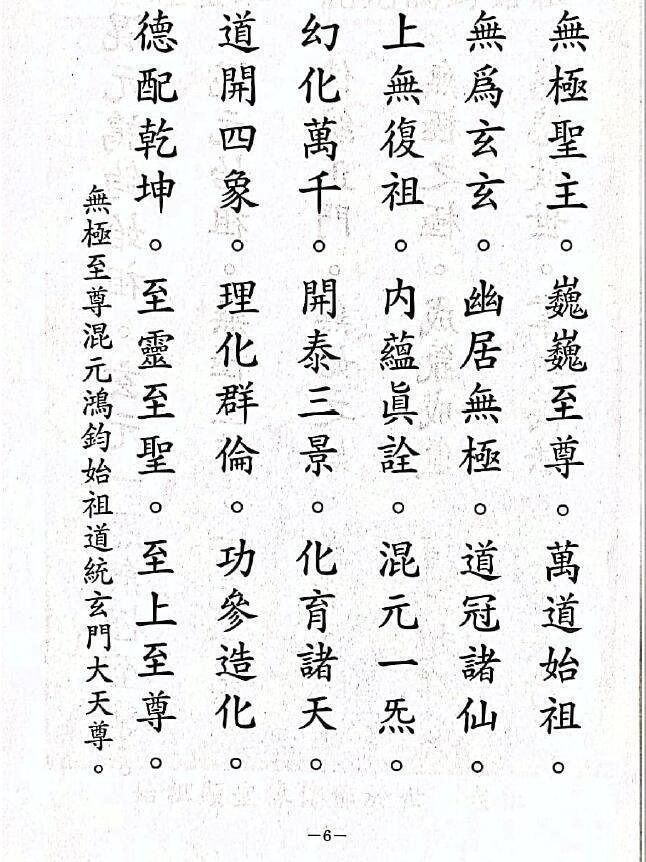 無極聖主。巍巍至尊。萬道始祖。
無爲玄玄。幽居無極。道冠諸仙。
上無復祖。内蘊眞詮。混元一炁。
幻化萬千。開泰三景。化育諸天。
道開四象。理化群倫。功參造化。
德配乾坤。至靈至聖。至上至尊。
無極至尊混元鴻鈞始祖道統玄門大天尊。
—6—